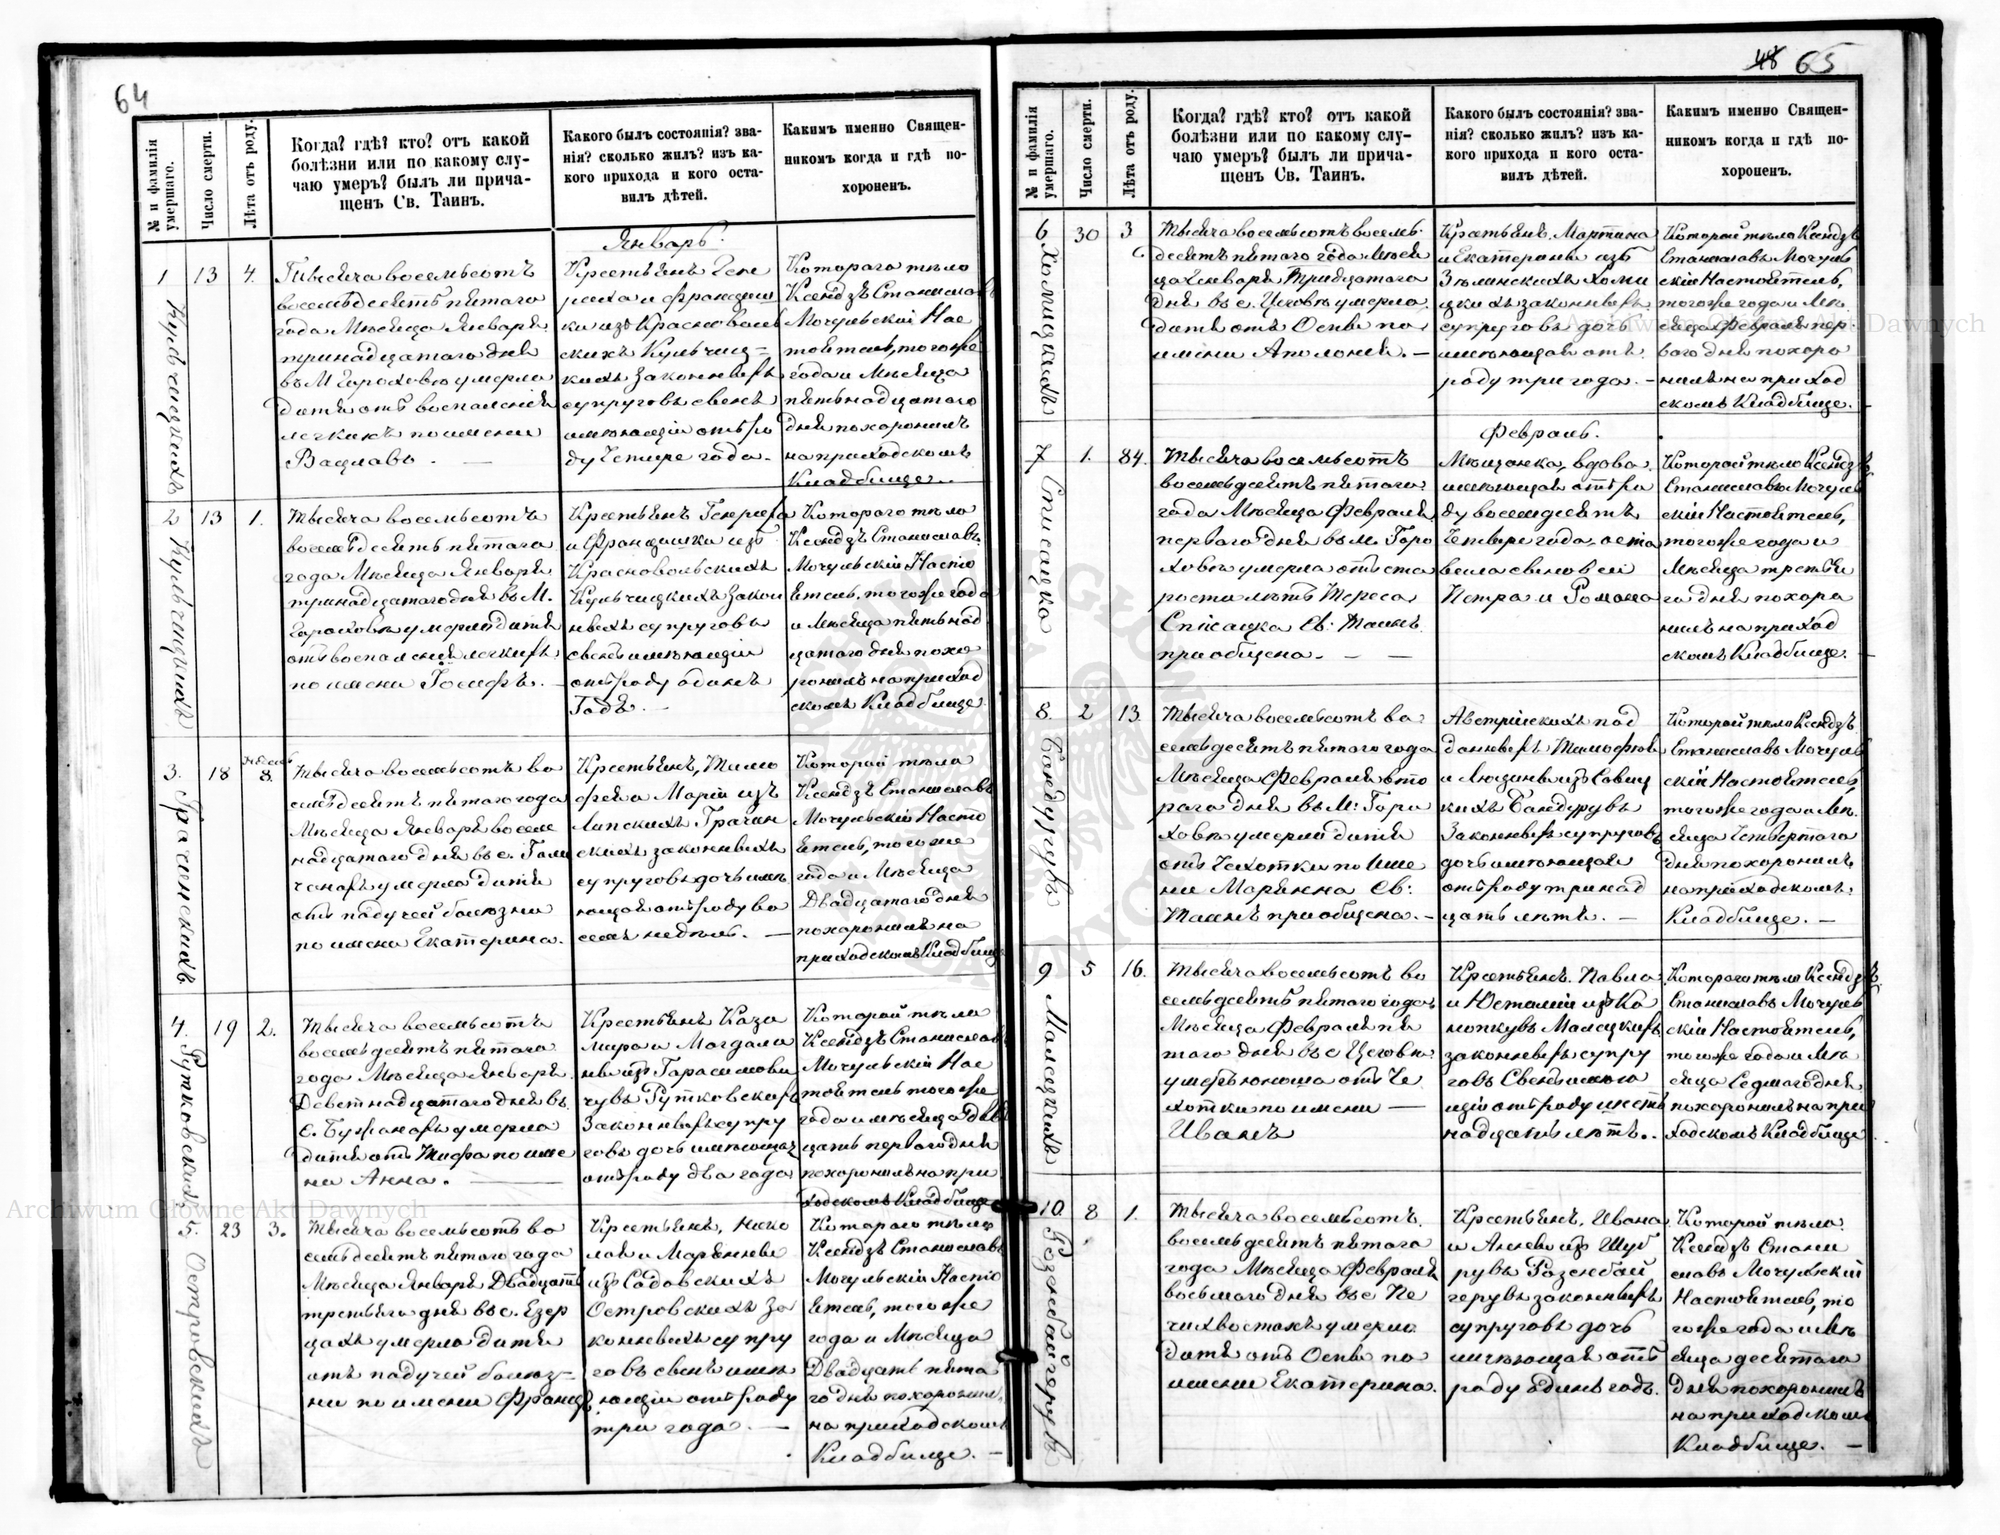 64
№ и фамилія умершаго.
Число смерти.
Лѣта отъ роду.
Когда? гдѣ? кто? отъ какой
болѣзни или по какому слу-
чаю умеръ? былъ ли прича-
щенъ Св. Таинъ.
Какого былъ состоянія? зва-
нія? сколько жилъ? изъ ка-
кого прихода и кого оста-
вилъ дѣтей.
Каким именно Священ-
никомъ когда и гдѣ по-
хороненъ.
Январь.
1
Кульчицкихъ
13
4.
Тысяча восемьсотъ
восемьдесятъ пятаго
года Мѣсяца Января
тринадцатого дня
въ М Гороховѣ умерло
дитя отъ воспаленія
легкихъ по имени
Вацлавъ. —
Крестьянъ Генр
риха и Францыш
ки изъ Красноволь
скихъ Кульчиц=
кихъ Законныхъ
супруговъ сынъ
имѣющій отъ ро
ду Четыре года. —
Котораго тѣло
Ксендзъ Станиславъ
Мочульскій Нас
тоятель, тогоже
года и Мѣсяца
пятнадцатого
дня похоронилъ
на приходскомъ
Кладбище. —
2
Кульчицкихъ
13
1.
Тысяча восемьсотъ
восемьдесятъ пятаго
года Мѣсяца Января
тринадцатого дня въ М.
Гороховѣ умерло дитя
отъ воспаленія легкихъ
по имени Іосифъ. —
Крестьянъ Генриха
и Францишки изъ
Красновольскихъ
Кульчицкихъ закон
ныхъ супруговъ
сынъ имѣющій
отъ роду одинъ
Годъ. —
Котораго тѣло
Ксендзъ Станиславъ
Мочульскій Насто
ятель, тогоже года
и Мѣсяца пятьнад
цатого дня похо
ронилъ на приход
скомъ Кладбище
3.
18
8.
Тысяча восемьсотъ во
семьдесятъ пятого года
Мѣсяца Января восем
надцатого дня въ с.
умерло дитя
отъ падучей болезни
по имени Екатерина.
Крестьянъ, Тимо
фея и Маріи изъ
Липскихъ
законныхъ
супруговъ дочь имѣ
ющая отъ роду во
семь недѣль. —
Которой тѣло
Ксендзъ Станиславъ
Мочульскій Насто
ятель, тогоже
года и Мѣсяца
Двадцатого дня
похоронилъ на
приходскомъ Кладбище
4.
Рутковскихъ
19
2.
Тысяча восемьсотъ
восемьдесятъ пятаго
года Мѣсяца Января
Девятнадцатого дня въ
с. умерло
дитя отъ Тифа по име
ни Анна. —
Крестьянъ Кази
мира и Магдали
ны изъ Гарасимови
чувъ Рутковскихъ
Законныхъ супру
говъ дочь имѣющая
отъ роду два года
Которой тѣло
Ксендзъ Станиславъ
Мочульскій Нас
тоятель тогоже
года и мѣсяца два
цать первого дня
похоронилъ на при
ходскомъ Кладбище
5.
Островскихъ
23
3.
Тысяча восемьсотъ во
семьдесятъ пятого года
Мѣсяца Января Двадцать
третьяго дня въ с. Езер
цахъ умерло дитя
отъ падучей болез=
ни по имени Францъ
Крестьянъ, Нико
лая и Марянны
изъ Садовскихъ
Островскихъ за
конныхъ супру
говъ сынъ имѣ
ющій отъ роду
три года. —
Котораго тѣло
Ксендзъ Станиславъ
Мочульскій Насто
ятель, тогоже
года и Мѣсяца
Двадцать пята
го дня похоронилъ
на приходскомъ
Кладбище. —
48 65
№ и фамилія умершаго.
Число смерти.
Лѣта отъ роду.
Когда? гдѣ? кто? отъ какой
болѣзни или по какому слу-
чаю умеръ? былъ ли прича-
щенъ Св. Таинъ.
Какого былъ состоянія? зва-
нія? сколько жилъ? изъ ка-
кого прихода и кого оста-
вилъ дѣтей.
Каким именно Священ-
никомъ когда и гдѣ по-
хороненъ.
6
Хомицкихъ
30
3
Тысяча восемьсотъ восемь-
десятъ пятого года Мѣся
ца Января Тридцатого
дня въ с. Цеговѣ умерло
дитя отъ Оспы по
имени Аполонія. —
Крестьянъ, Мартина
и Екатерины изъ
Зелинскихъ Хоми
цкихъ законныхъ
супруговъ дочь
имѣющая отъ
роду три года. —
Которой тѣло Ксендзъ
Станиславъ Мочуль
скій Настоятель,
тогоже года и Мѣ
сяца Февраля пер
вого дня похоро
нилъ на приход
скомъ Кладбище. —
Февраль.
7
Списацка
1.
84.
Тысяча восемьсотъ
восемьдесятъ пятаго
года Мѣсяца Февраля
первого дня въ М. Горо
ховѣ умерла отъ ста
рости лѣтъ Тереса
Списацка Св. Таинъ
приобщена. — —
Мѣщанка, вдова
имѣющая отъ ро
ду восемдесятъ
Четыре года, оста
вила сыновей
Петра и Романа
Которой тѣло Ксендзъ
Станиславъ Мочуль
скій Настоятель,
тогоже года и
Мѣсяца третья
го дня похоро
нилъ на приход
скомъ Кладбище. —
8.
Бандурувъ
2
13.
Тысяча восемьсотъ во
семьдесятъ пятого года
Мѣсяца Февраля вто
рого дня въ М. Горо
ховѣ умерло дитя
отъ Чахотки по име
ни Марянна Св:
Таинъ приобщена. —
Австрійскихъ под
данныхъ Тимофея
и Люцины изъ Савиц
кихъ Бандурувъ
Законныхъ супруговъ
дочь имѣющая
отъ роду тринад
цать лѣтъ. —
Которой тѣло Ксендзъ
Станиславъ Мочуль
скій Настоятель,
тогоже года и Мѣ
сяца Четвертого
дня похоронилъ
на приходскомъ
Кладбище. —
9
Малецкихъ
5
16.
Тысяча восемьсотъ во
семьдесятъ пятого года
Мѣсяца Февраля пя
того дня въ с Цеговѣ
умеръ юноша отъ Ча
хотки по имени —
Иванъ
Крестьянъ, Павла
и Юсталіи изъ Ко
нопкувъ Малецкихъ
законныхъ супру
говъ Сынъ имѣю
щій отъ роду шесть
надцать лѣтъ. —
Котораго тѣло Ксендзъ
Станиславъ Мочуль
скій Настоятель,
тогоже года и Мѣ
сяца Седмаго дня
похоронилъ на при
ходскомъ Кладбище
10
Розенбайгерувъ
8
1.
Тысяча восемьсотъ
восемьдесятъ пятаго
года Мѣсяца Февраля
восьмого дня въ с Пе
чихвостахъ умерло
дитя отъ Оспы по
имени Екатерина.
Крестьянъ, Ивана
и Анны изъ Шуб
рувъ Розенбай
герувъ законныхъ
супруговъ дочь
имѣющая отъ
роду одинъ годъ.
Которой тѣло
Ксендзъ Стани
славъ Мочульскій
Настоятель, то
гоже года и Мѣ
сяца десятого
дня похоронилъ
на приходскомъ
Кладбище. —
Archiwum Główne Akt Dawnych
Archiwum Główne Akt Dawnych